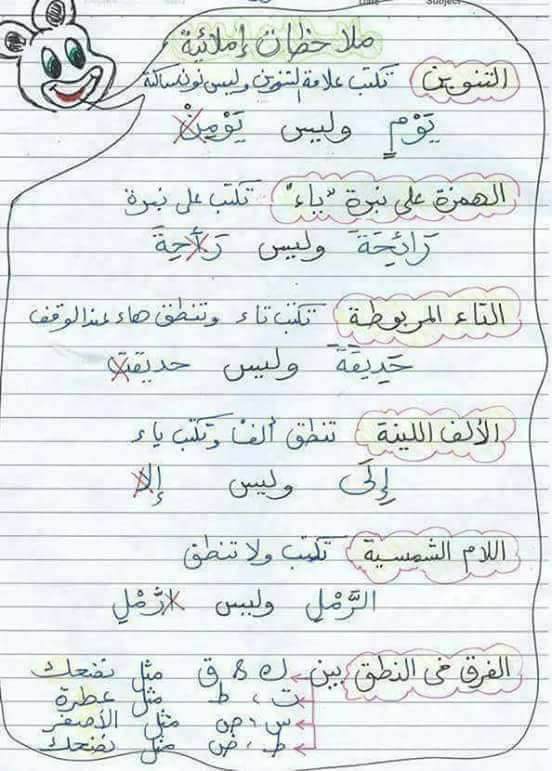 Date Subject
ملاحظات إملائية
التنوين تكتب علامة التنوين وليس نون ساكنة
يَوْمٍ وليس يَوْمِنْ
الهمزة على نبرة "ياء" تكتب على نبرة
رَائِحَةَ وليس رَأحِةَ
التاء المربوطة تكتب تاء وتنطق هاء عند الوقف
حَدِيقَةَ وليس حديقت
الألف اللينة تنطق ألفا وتكتب ياء
إِلَى وليس إلا
اللام الشمسية تكتب ولا تنطق
الرَّمْلِ وليس ارَّمْلِ
الفرق في النطق بين ك & ق مثل تضحك
ت ، ط مثل عطرة
س ، ص مثل الأصفر
ط ، ض مثل تضحك